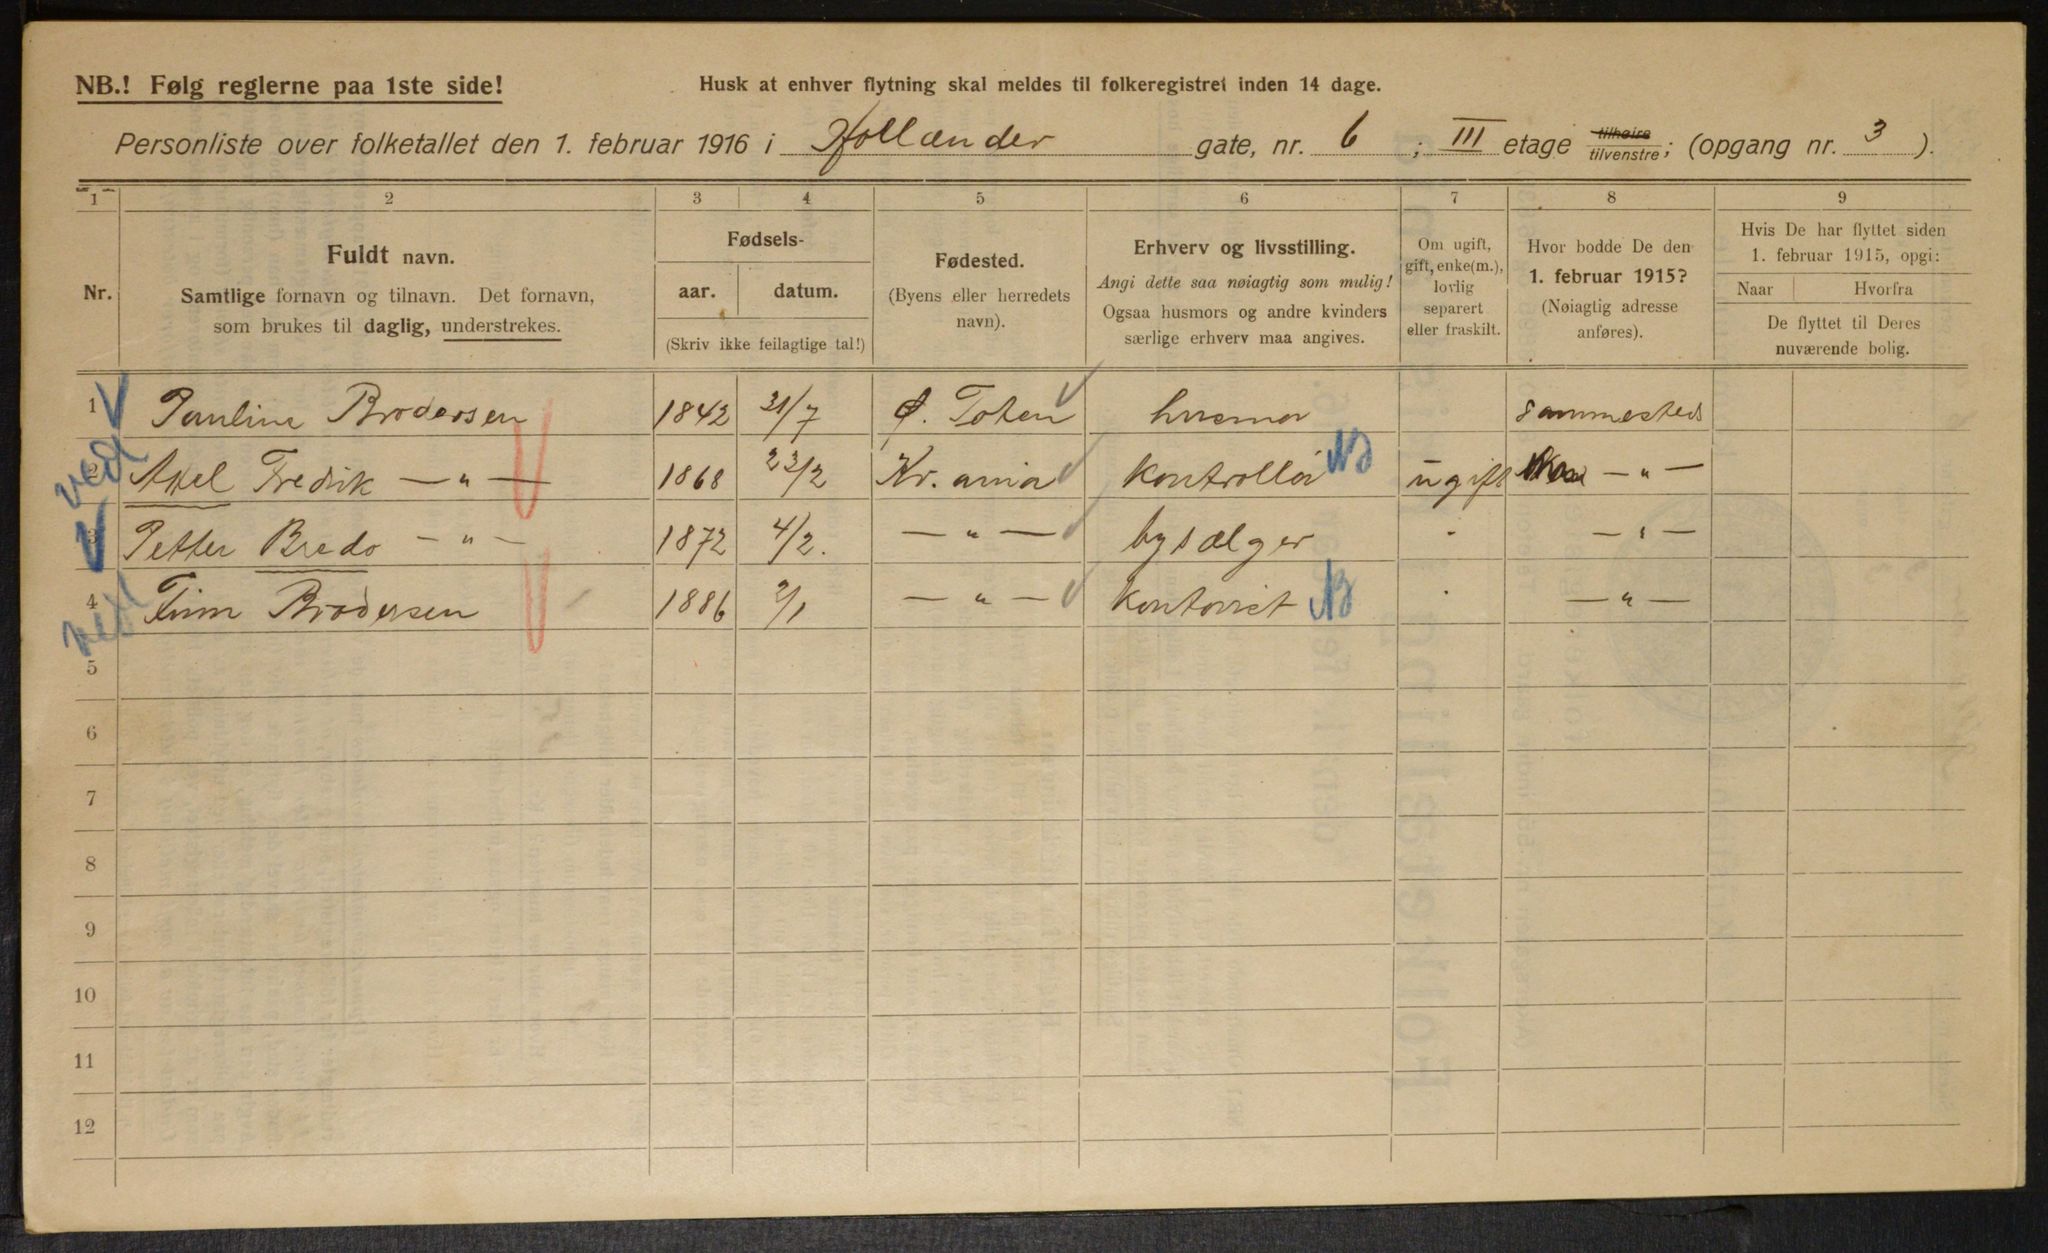 NB.! Følg reglerne paa 1ste side!
Husk at enhver flytning skal meldes til folkeregistret inden 14 dage.
Personliste over folketallet den 1. februar 1916 i Hollænder gate, nr. 6; III etage tilhøire tilvenstre; (opgang nr. 3).
1 2 3 4 5 6 7 8 9
Nr.
Fuldt navn.
Samtlige fornavn og tilnavn. Det fornavn,
som brukes til daglig, understrekes.
Fødsels-
aar. datum.
(Skriv ikke feilagtige tal!)
Fødested.
(Byens eller herredets
navn).
Erhverv og livsstilling.
Angi dette saa nøiagtig som mulig!
Ogsaa husmors og andre kvinders
særlige erhverv maa angives.
Om ugift,
gift, enke(m.),
lovlig
separert
eller fraskilt.
Hvor bodde De den
1. februar 1915?
(Nøiagtig adresse
anføres).
Hvis De har flyttet siden
1. februar 1915, opgi:
Naar Hvorfra
De flyttet til Deres
nuværende bolig.
1 Pauline Brodersen 1842 21/7 Ø. Toten husmor sammesteds
2 Axel Fredrik — " — 1868 23/2 Kr. ania Kontrollør NB ugift — " —
3 Petter Bredo — " — 1872 4/2. — " — bysælger " — " —
4 Finn Brodersen 1886 2/1 — " — Kontorist NB " — " —
5
6
7
8
9
10
11
12